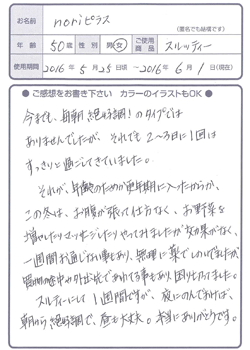 お名前 noriピラス
(匿名でも結構です)
年齢 50歳 性別 男・女 ご使用商品 スルッティー
使用期間 2016年5月25日頃 ～ 2016年6月1日(現在)
● ご感想をお書き下さい カラーのイラストもOK ●
今までも、毎朝絶好調!のタイプでは
ありませんでしたが、それでも2～3日に1回は
すっきりと過ごしてきていました。
それが、年齢のためか更年期に入ったからか、
この冬は、お腹が張って仕方なく、お野菜を
増やしたりマッサージしたりやってみましたが効果がなく、
一週間お通じない事もあり、無理に薬でしのいでましたが
途中や外出先であわてる事もあり、困り
スルッティーにして1週間ですが、夜にのんでおけば、
朝から絶好調で、昼も大丈夫。本当にありがとうです。